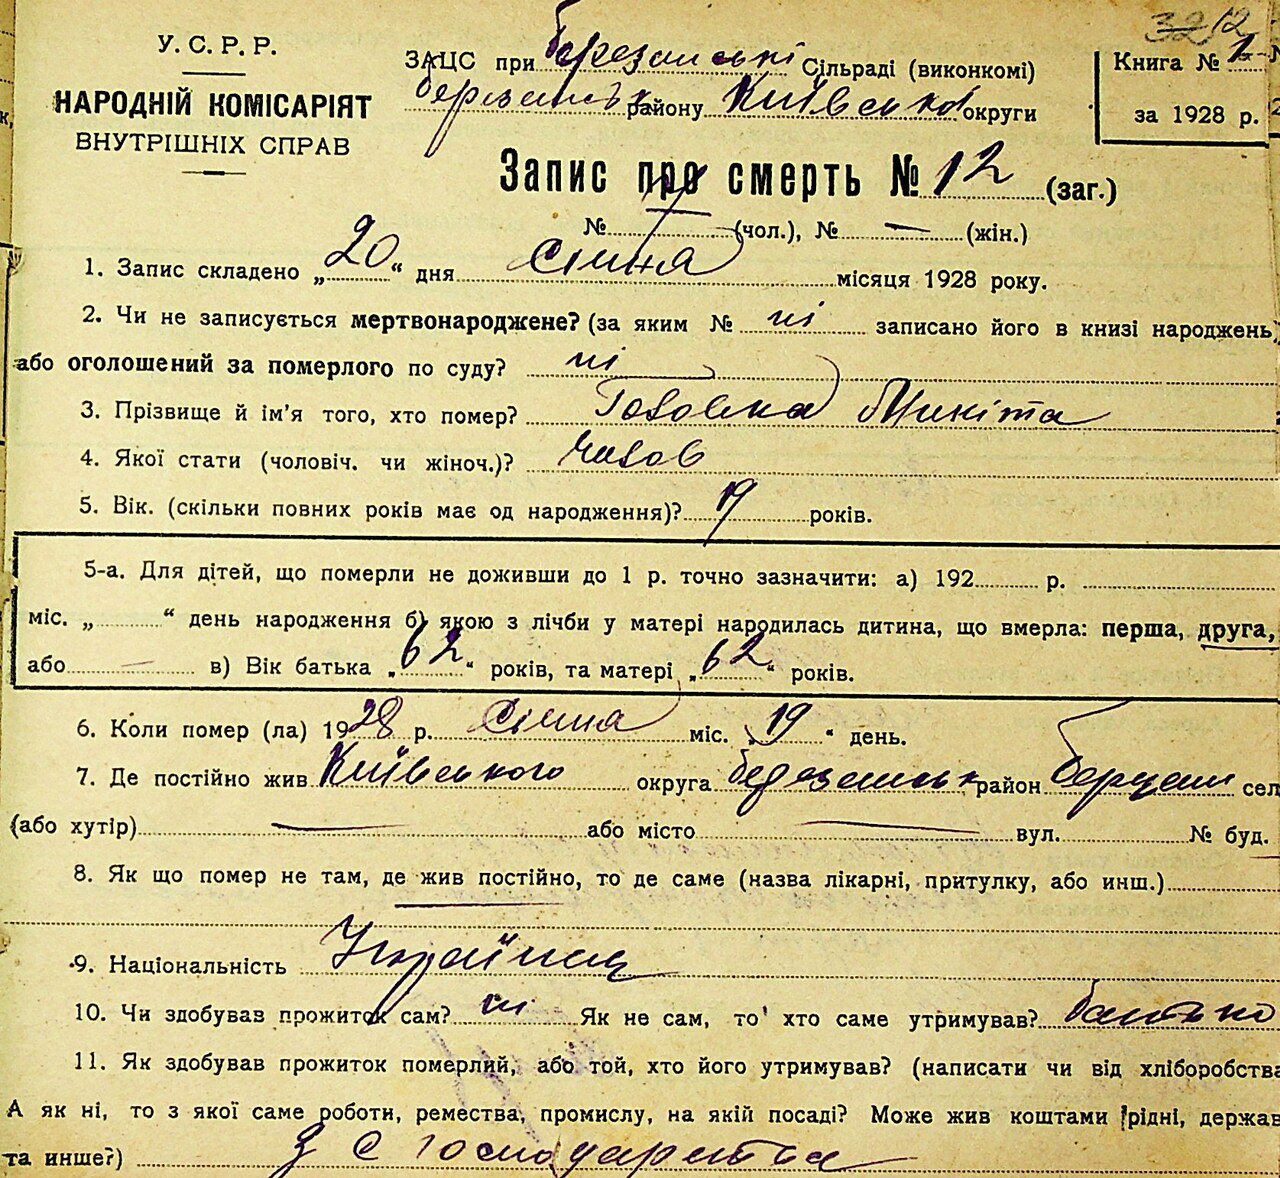 32 12
У. С. Р. Р.
НАРОДНІЙ КОМІСАРІЯТ
ВНУТРІШНІХ СПРАВ
ЗАЦС при Березанські Сільраді (виконкомі)
Березанськ району Київської округи
Книга № 1
за 1928 р.
Запис про смерть № 12 (заг.)
№ 7 (чол.), № — (жін.)
1. Запис складено „20“ дня Січня місяця 1928 року.
2. Чи не записується мертвонароджене? (за яким № ні записано його в книзі народжень,
або оголошений за померлого по суду? ні
3. Прізвище й ім'я того, хто помер? Головка Микіта
4. Якої стати (чоловіч. чи жіноч.)? чолов
5. Вік. (скільки повних років має од народження)? 19 років.
5-а. Для дітей, що померли не доживши до 1 р. точно зазначити: а) 192 р.
міс. „ “ день народження б) якою з лічби у матері народилась дитина, що вмерла: перша, друга,
або — в) Вік батька „62“ років, та матері „62“ років.
6. Коли помер (ла) 1928 р. Січня міс. „19“ день.
7. Де постійно жив Київського округа Березанськ район Березані сел
(або хутір) — або місто — вул. № буд.
8. Як що помер не там, де жив постійно, то де саме (назва лікарні, притулку, або инш.)
9. Національність Українец
10. Чи здобував прожиток сам? ні Як не сам, то хто саме утримував? батько
11. Як здобував прожиток померлий, або той, хто його утримував? (написати чи від хліборобства
А як ні, то з якої саме роботи, ремества, промислу, на якій посаді? Може жив коштами рідні, держав
та инше?) З с господарства